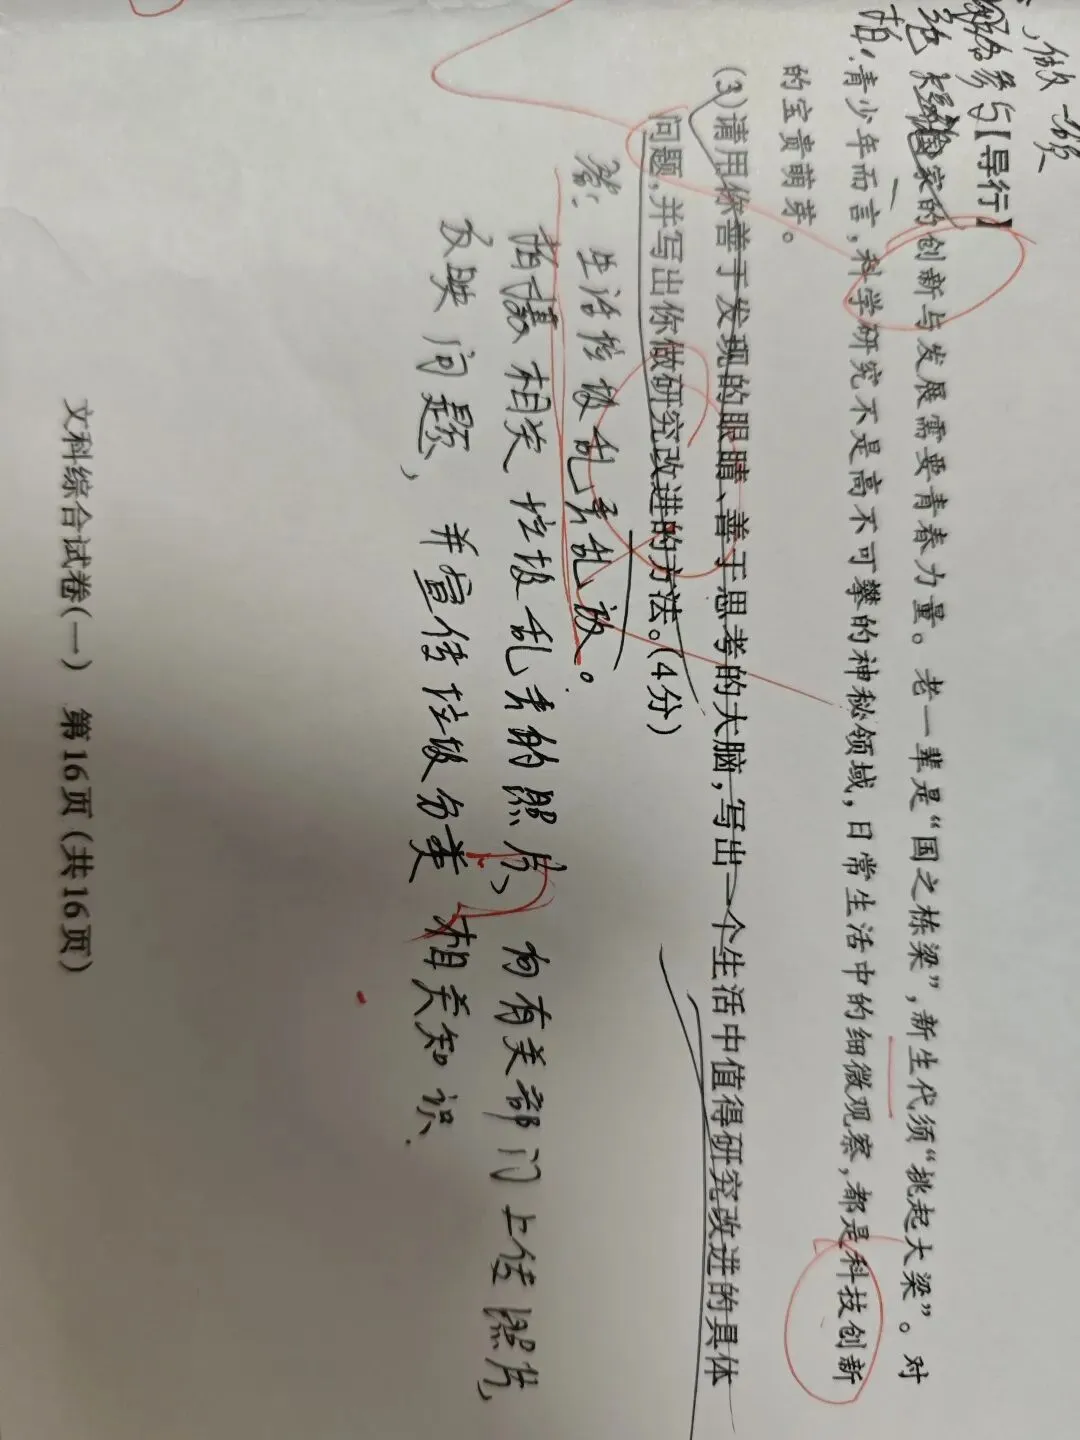 ，做一项
参与【导行】
国家的创新与发展需要青春力量。老一辈是“国之栋梁”，新生代须“挑起大梁”。对
青少年而言，科学研究不是高不可攀的神秘领域，日常生活中的细微观察，都是科技创新
的宝贵萌芽。
(3)请用你善于发现的眼睛、善于思考的大脑，写出一个生活中值得研究改进的具体
问题，并写出你做研究改进的方法。(4分)
答：生活垃圾乱丢乱放。
拍摄相关垃圾乱丢的照片，向有关部门上传照片，
反映问题，并宣传垃圾分类相关知识.
文科综合试卷(一) 第16页(共16页)